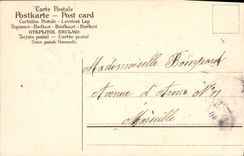 Carte Postale
Postkarte — Post card
Cartolina Postale - Levelező Lap
Dopisnice - Brefkaart - Brevkort
ОТКРЫТОЕ ПИСЬМО.
Tarjeta postal — Cartão postal
Union postale Universelle
Mademoiselle Bompard
Avenue d'Arenc No
Marseille